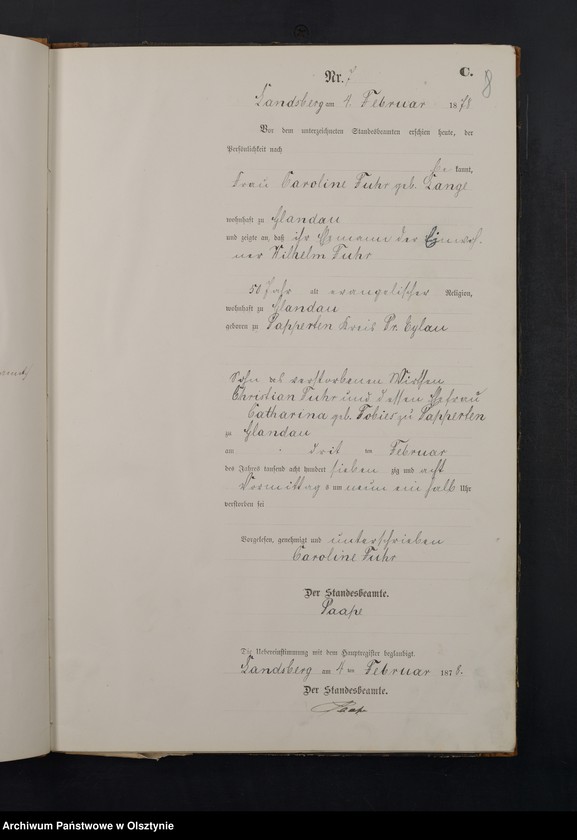 C.
8
Nr. 7
Landsberg am 4. Februar 1878
Vor dem unterzeichneten Standesbeamten erschien heute, der
Persönlichkeit nach
be kannt,
Frau Caroline Fuhr geb. Lange
wohnhaft zu Glandau
und zeigte an, daß ihr Ehemann der Einwoh-
ner Wilhelm Fuhr
50 Jahr alt evangelischer Religion,
wohnhaft zu Glandau
geboren zu Papperten Kreis Pr. Eylau
Sohn des verstorbenen
Christian Fuhr und dessen Ehefrau
Catharina geb. Tobies zu Papperten
zu Glandau
am drit ten Februar
des Jahres tausend acht hundert sieben zig und acht
Vormittags um neun ein halb Uhr
verstorben sei
Vorgelesen, genehmigt und unterschrieben
Caroline Fuhr
Der Standesbeamte.
Paape
Die Uebereinstimmung mit dem Hauptregister beglaubigt.
Landsberg am 4 ten Februar 1878.
Der Standesbeamte.
Paape
Archiwum Państwowe w Olsztynie